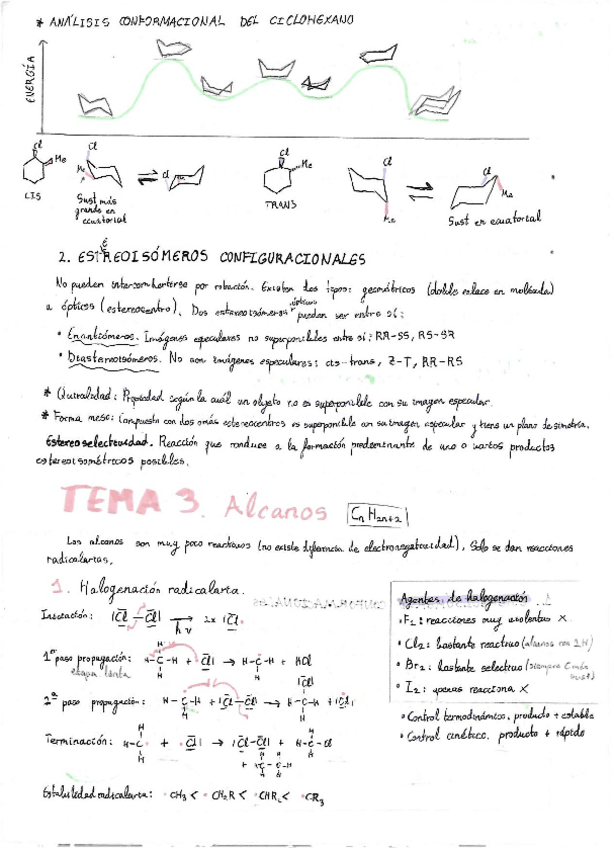 * ANÁLISIS CONFORMACIONAL DEL CICLOHEXANO
ENERGÍA
Cl
Me
CIS
Cl
Me
Sust más
grande en
ecuatorial
Cl
Cl
Me
TRANS
Cl
Me
Cl
Me
Sust en ecuatorial
2. ESTEREOISÓMEROS CONFIGURACIONALES
No pueden interconvertirse por rotación. Existen dos tipos: geométricos (doble enlace en molécula)
u ópticos (estereocentro). Dos estereoisómeros ópticos pueden ser entre sí:
• Enantiómeros. Imágenes especulares no superponibles entre sí: RR-SS, RS-SR
• Diastereoisómeros. No son imágenes especulares: cis-trans, Z-T, RR-RS
* Quiralidad: Propiedad según la cuál un objeto no es superponible con su imagen especular.
* Forma meso: Compuesto con dos o más estereocentros es superponible con su imagen especular y tiene un plano de simetría.
Estereoselectividad. Reacción que conduce a la formación predominante de uno o varios productos
estereoisométricos posibles.
TEMA 3. Alcanos CnH2n+2
Los alcanos son muy poco reactivos (no existe diferencia de electronegatividad). Solo se dan reacciones
radicalarias.
1. Halogenación radicalaria.
Iniciación: |Cl-Cl| → hν 2x |Cl·
1er paso propagación: H-C-H + ·Cl| → H-C-H + HCl
etapa lenta
2º paso propagación: H-C-H + |Cl-Cl| → H-C-H + |Cl·
|Cl|
Terminación: H-C· + ·Cl| → |Cl-Cl| + H-C-Cl
+ H-C-C-H
Estabilidad radicalaria: ·CH3 < ·CH2R < ·CHR2 < ·CR3
Agentes de halogenación
• F2: reacciones muy violentas X
• Cl2: bastante reactivo (alcanos con 1H)
• Br2: bastante selectivo (siempre C más sust)
• I2: apenas reacciona X
• Control termodinámico, producto + estable
• Control cinético, producto + rápido